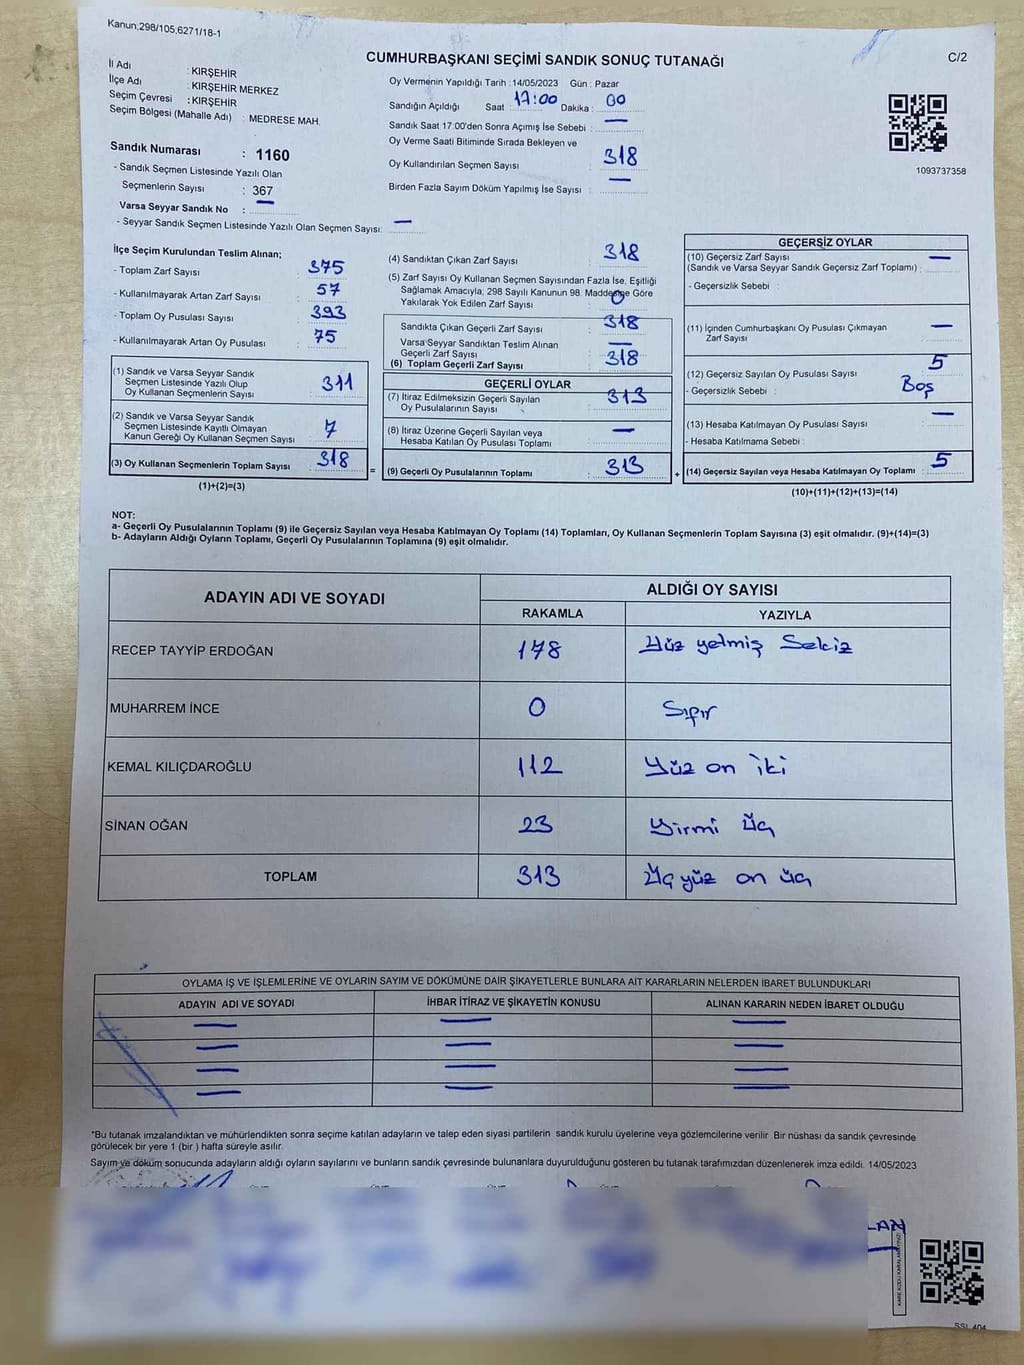 Kanun;298/105,6271/18-1
CUMHURBAŞKANI SEÇİMİ SANDIK SONUÇ TUTANAĞI
C/2
İl Adı : KIRŞEHİR
İlçe Adı : KIRŞEHİR MERKEZ
Seçim Çevresi : KIRŞEHİR
Seçim Bölgesi (Mahalle Adı) : MEDRESE MAH.
Oy Vermenin Yapıldığı Tarih :14/05/2023 Gün : Pazar
Sandığın Açıldığı Saat 17:00 Dakika : 00
Sandık Saat 17:00'den Sonra Açımış İse Sebebi : —
Oy Verme Saati Bitiminde Sırada Bekleyen ve
Oy Kullandırılan Seçmen Sayısı : 318
Birden Fazla Sayım Döküm Yapılmış İse Sayısı : —
1093737358
Sandık Numarası : 1160
- Sandık Seçmen Listesinde Yazılı Olan
Seçmenlerin Sayısı : 367
Varsa Seyyar Sandık No : —
- Seyyar Sandık Seçmen Listesinde Yazılı Olan Seçmen Sayısı: —
İlçe Seçim Kurulundan Teslim Alınan;
- Toplam Zarf Sayısı : 375
- Kullanılmayarak Artan Zarf Sayısı : 57
- Toplam Oy Pusulası Sayısı : 393
- Kullanılmayarak Artan Oy Pusulası : 75
(1) Sandık ve Varsa Seyyar Sandık
Seçmen Listesinde Yazılı Olup
Oy Kullanan Seçmenlerin Sayısı : 311
(2) Sandık ve Varsa Seyyar Sandık
Seçmen Listesinde Kayıtlı Olmayan
Kanun Gereği Oy Kullanan Seçmen Sayısı : 7
(3) Oy Kullanan Seçmenlerin Toplam Sayısı : 318
(1)+(2)=(3)
=
(4) Sandıktan Çıkan Zarf Sayısı : 318
(5) Zarf Sayısı Oy Kullanan Seçmen Sayısından Fazla İse, Eşitliği
Sağlamak Amacıyla; 298 Sayılı Kanunun 98. Maddesine Göre
Yakılarak Yok Edilen Zarf Sayısı : 0
Sandıkta Çıkan Geçerli Zarf Sayısı : 318
Varsa Seyyar Sandıktan Teslim Alınan
Geçerli Zarf Sayısı : —
(6) Toplam Geçerli Zarf Sayısı : 318
GEÇERLİ OYLAR
(7) İtiraz Edilmeksizin Geçerli Sayılan
Oy Pusulalarının Sayısı : 313
(8) İtiraz Üzerine Geçerli Sayılan veya
Hesaba Katılan Oy Pusulası Toplamı : —
(9) Geçerli Oy Pusulalarının Toplamı : 313
+
GEÇERSİZ OYLAR
(10) Geçersiz Zarf Sayısı
(Sandık ve Varsa Seyyar Sandık Geçersiz Zarf Toplamı) : —
- Geçersizlik Sebebi :
(11) İçinden Cumhurbaşkanı Oy Pusulası Çıkmayan
Zarf Sayısı : —
(12) Geçersiz Sayılan Oy Pusulası Sayısı : 5
- Geçersizlik Sebebi : Boş
(13) Hesaba Katılmayan Oy Pusulası Sayısı : —
- Hesaba Katılmama Sebebi :
(14) Geçersiz Sayılan veya Hesaba Katılmayan Oy Toplamı : 5
(10)+(11)+(12)+(13)=(14)
NOT:
a- Geçerli Oy Pusulalarının Toplamı (9) ile Geçersiz Sayılan veya Hesaba Katılmayan Oy Toplamı (14) Toplamları, Oy Kullanan Seçmenlerin Toplam Sayısına (3) eşit olmalıdır. (9)+(14)=(3)
b- Adayların Aldığı Oyların Toplamı, Geçerli Oy Pusulalarının Toplamına (9) eşit olmalıdır.
ADAYIN ADI VE SOYADI ALDIĞI OY SAYISI
RAKAMLA YAZIYLA
RECEP TAYYİP ERDOĞAN 178 Yüz yetmiş Sekiz
MUHARREM İNCE 0 Sıfır
KEMAL KILIÇDAROĞLU 112 Yüz on iki
SİNAN OĞAN 23 Yirmi üç
TOPLAM 313 Üç yüz on üç
OYLAMA İŞ VE İŞLEMLERİNE VE OYLARIN SAYIM VE DÖKÜMÜNE DAİR ŞİKAYETLERLE BUNLARA AİT KARARLARIN NELERDEN İBARET BULUNDUKLARI
ADAYIN ADI VE SOYADI İHBAR İTİRAZ VE ŞİKAYETİN KONUSU ALINAN KARARIN NEDEN İBARET OLDUĞU
— — —
— — —
— — —
— — —
*Bu tutanak imzalandıktan ve mühürlendikten sonra seçime katılan adayların ve talep eden siyasi partilerin sandık kurulu üyelerine veya gözlemcilerine verilir. Bir nüshası da sandık çevresinde
görülecek bir yere 1 (bir) hafta süreyle asılır.
Sayım ve döküm sonucunda adayların aldığı oyların sayılarını ve bunların sandık çevresinde bulunanlara duyurulduğunu gösteren bu tutanak tarafımızdan düzenlenerek imza edildi. 14/05/2023